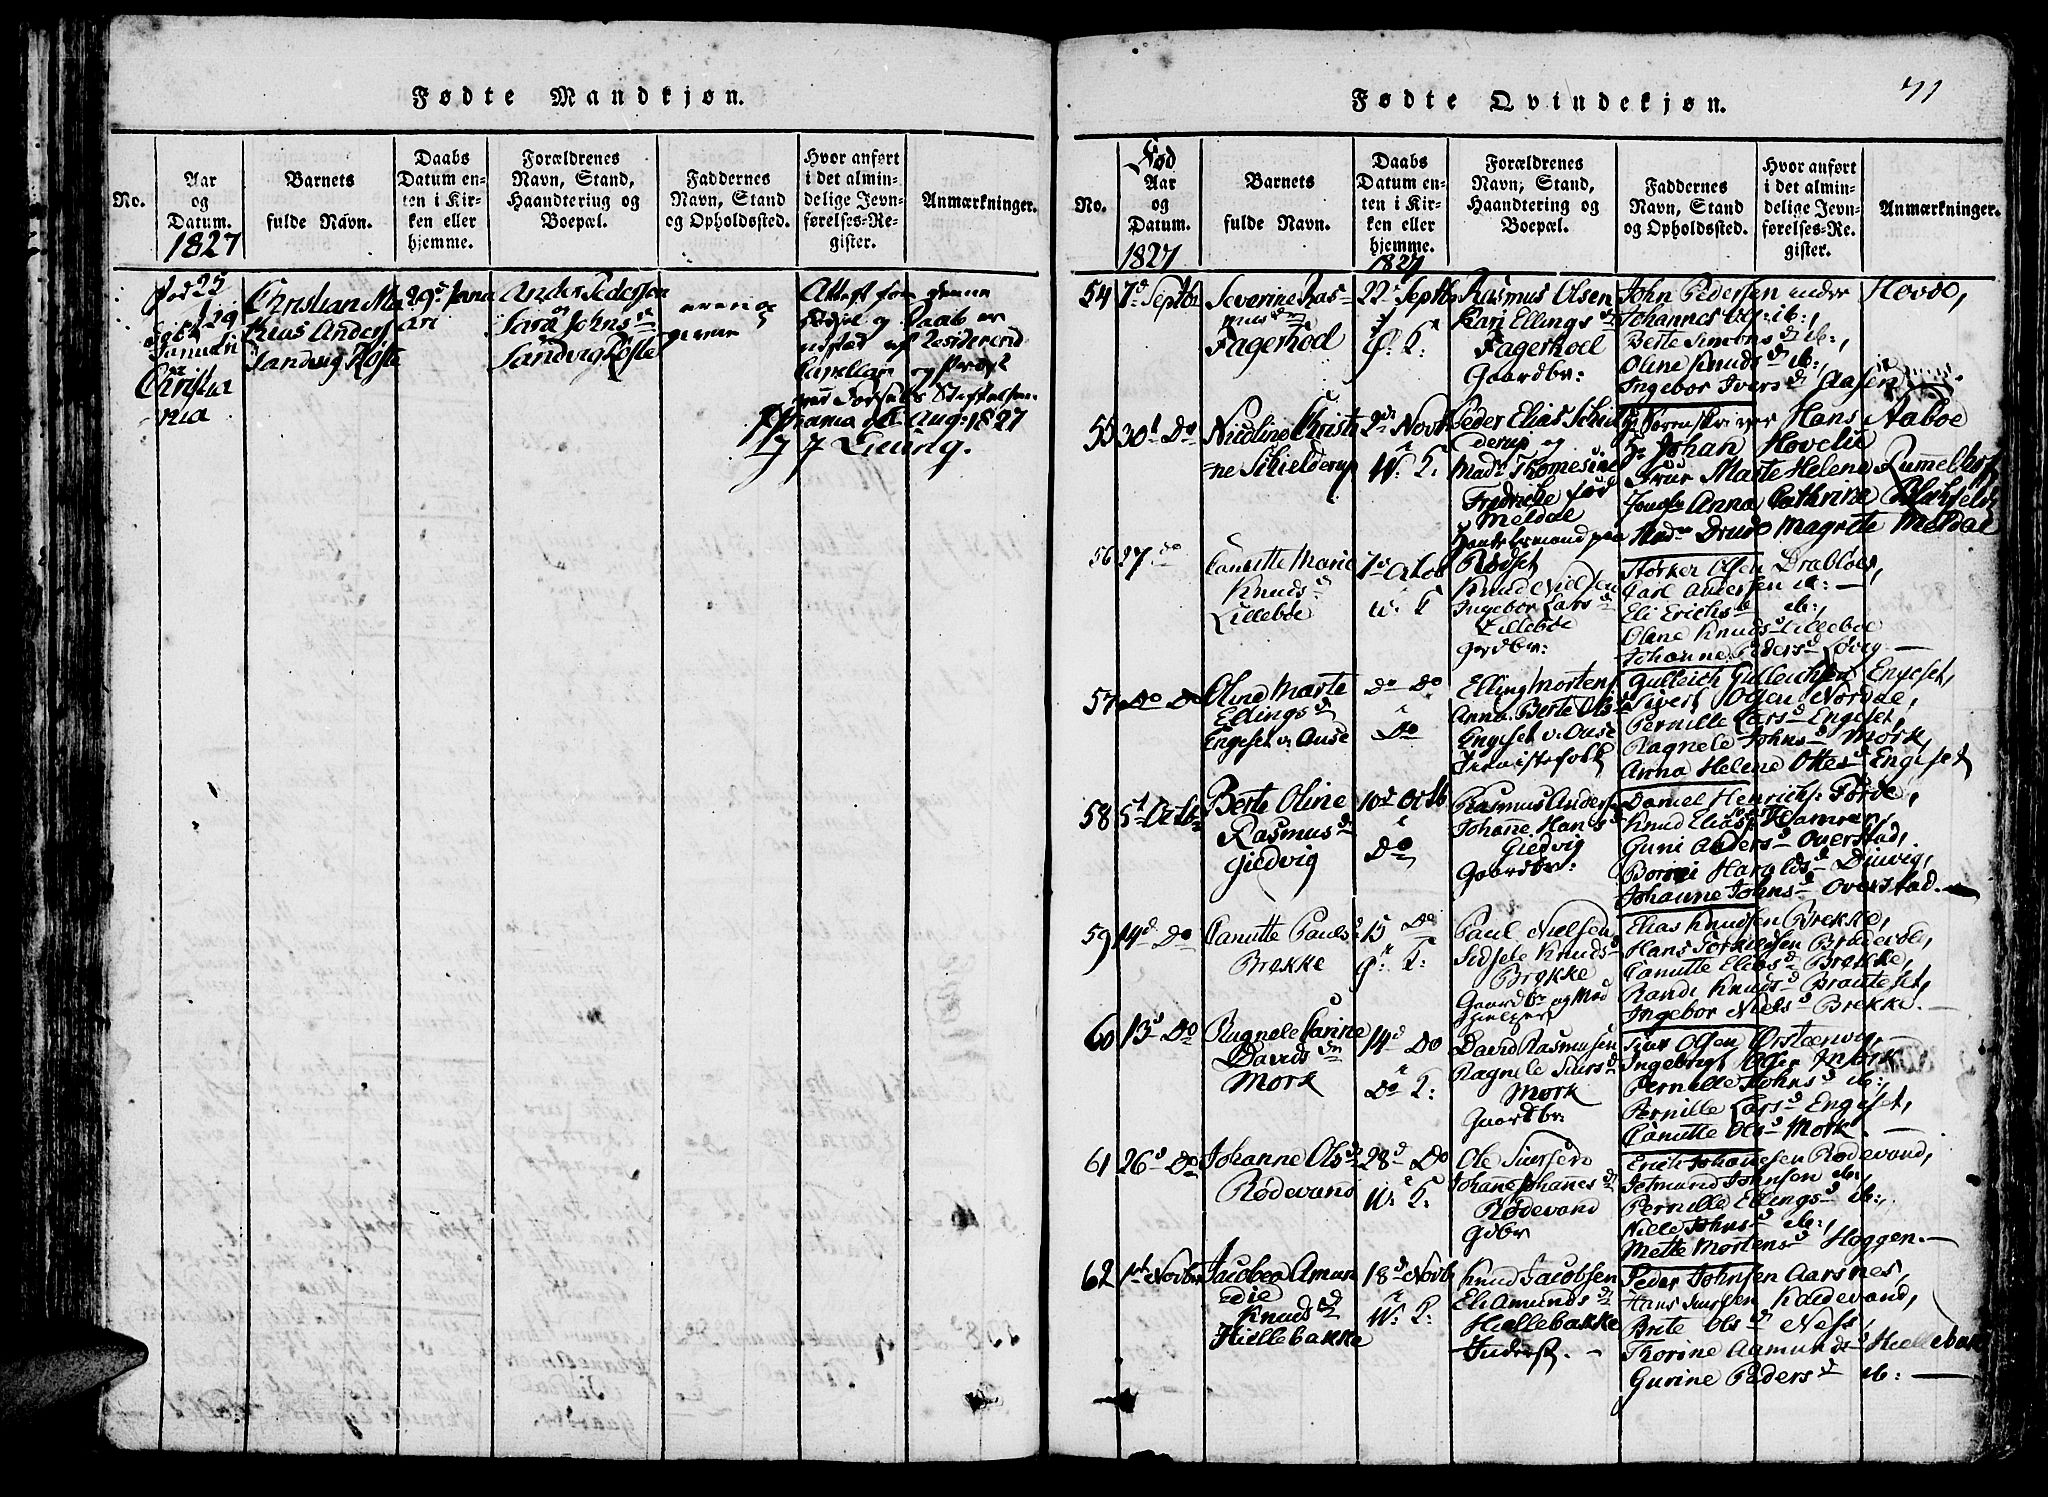 Fødte Mandkjøn.
No.
Aar
og
Datum.
1827
Barnets
fulde Navn.
Daabs
Datum en-
ten i Kir-
ken eller
hjemme.
Forældrenes
Navn, Stand,
Haandtering og
Boepæl.
Faddernes
Navn, Stand
og Opholdssted.
Hvor anført
i det almin-
delige Jevn-
førelses-Re-
gister.
Anmærkninger.
Januari
Christia
nia
Christian Ma
thias Anders
Sandvig Røste
29d Janu
ari
Anders Pedersen
Sara Johnsd
Sandvig Røste
Attest for denne
fødsel og Daab er
udsted af Residerend
Capellan og Præst
ved Torsels Stiftelsen
Aug: 1827
J J Lunig.
71
Fødte Qvindekjøn.
No.
Fød
Aar
og
Datum.
1827
Barnets
fulde Navn.
Daabs
Datum en-
ten i Kir-
ken eller
hjemme.
1827
Forældrenes
Navn, Stand,
Haandtering og
Boepæl.
Faddernes
Navn, Stand
og Opholdssted.
Hvor anført
i det almin-
delige Jevn-
førelses-Re-
gister.
Anmærkninger.
54 7d Septb
Severine Ras-
musdr
Fagerhol
22d Septb
Rasmus Olsen
Kari Ellingsd
Fagerhoel
Gaardbr:
John Pedersen under Hovde,
Johannes Ols: ib:,
Berte Simonsd ib:,
Oline Knudsd ib:,
Ingebor Iversd Aasen
55 30t Do
Nicoline Christi
-ne Schielderup
2d Novb
W. K:
Peder Elias Schiel
derup og
Mad: Thomesine
Fredrikke fød
Meldal
Hr Sorenskriver Hans Aaboe
Hr Johan Hovelie
Frue Marte Helene Rummelhof
Jomfr Anna Cathrine
Mad: Drude Magrete Meldal
56 27 do
Canutte Marie
Knudsd
Lillebøe
7d Octob
W. K
Rødset
Knud Nielsen
Ingebor Larsd
Lillebøe
Gardbr:
Størker Olsen Drabløes,
Carl Andersen ib: —
Eli Erichsd ib:,
Oline Knudsd Lillebøe
Johanne Pedersd Løvig —
57 Do Do
Oline Marte
Ellingsd
Engeset v: Ouse
Do Do
Do
Elling Mortens
Anna Berte Olsd
Engeset v. Ouse
Tienistefolk
Gulleich Gulleichsen Engeset,
Sivert Olsen Nordal
Pernille Larsd Engeset,
Ragnele Johnsd Mork,
Anna Helene Ottesd Engeset
58 5t Octb
Berte Oline
Rasmusd
Giedvig
10d Octb
Do
Rasmus Anders
Johanne Hansd
Giedvig
Gaardbr:
Daniel Henrichs: Førde,
Knud Elias: Hamre,
Guni Andersd Overstad,
Borni Haroldsd Diuvig,
Johanne Johnsd Overstad. —
59 14d Do
Canutte Paulsd
Brekke
15 Do
K:
Paul Nielsen
Sidsele Knudsd
Brekke
Gaardbr og Med
hielper
Elias Knudsen Brekke,
Hans Torkildsen Brudevol,
Canutte Eliasd Brekke,
Randi Knudsd Brauteset,
Ingebor Nielsd Brekke. —
60 13d Do
Ragnele Carine
Davidsdr
Mork
14d Do
Do K:
David Rasmusen
Ragnele Siursd
Mork
Gaardbr
Siur Olsen Ørstenvig, —
Ingebrigt Olsen Mork
Pernille Johnsd ib:,
Pernille Larsd Engeset,
Canutte Olsd Mork. —
61 26d Do
Johanne Olsd
Rødevand
28d Do
W. K:
Ole Siursen
Johanne Johannesd
Rødevand
Gdbr
Erich Johannesen Rødevand,
Jetmund Johnsen ib:
Pernille Ellingsd ib:,
Nille Johnsd ib:,
Mette Mortensd Hoggen. —
62 1st Novbr
Jacobea Amun
die
Knudsd
Hiellebakke
18d Novb
W. K:
Knud Jacobsen
Eli Amundsd
Hiellebakke
Inderst. —
Peder Johnsen Aarsnes,
Hans Siursen Koldevand,
Brite Olsd Ness,
Thorine Aamundsd Hiellebak
Gurine Pedersd ib: —